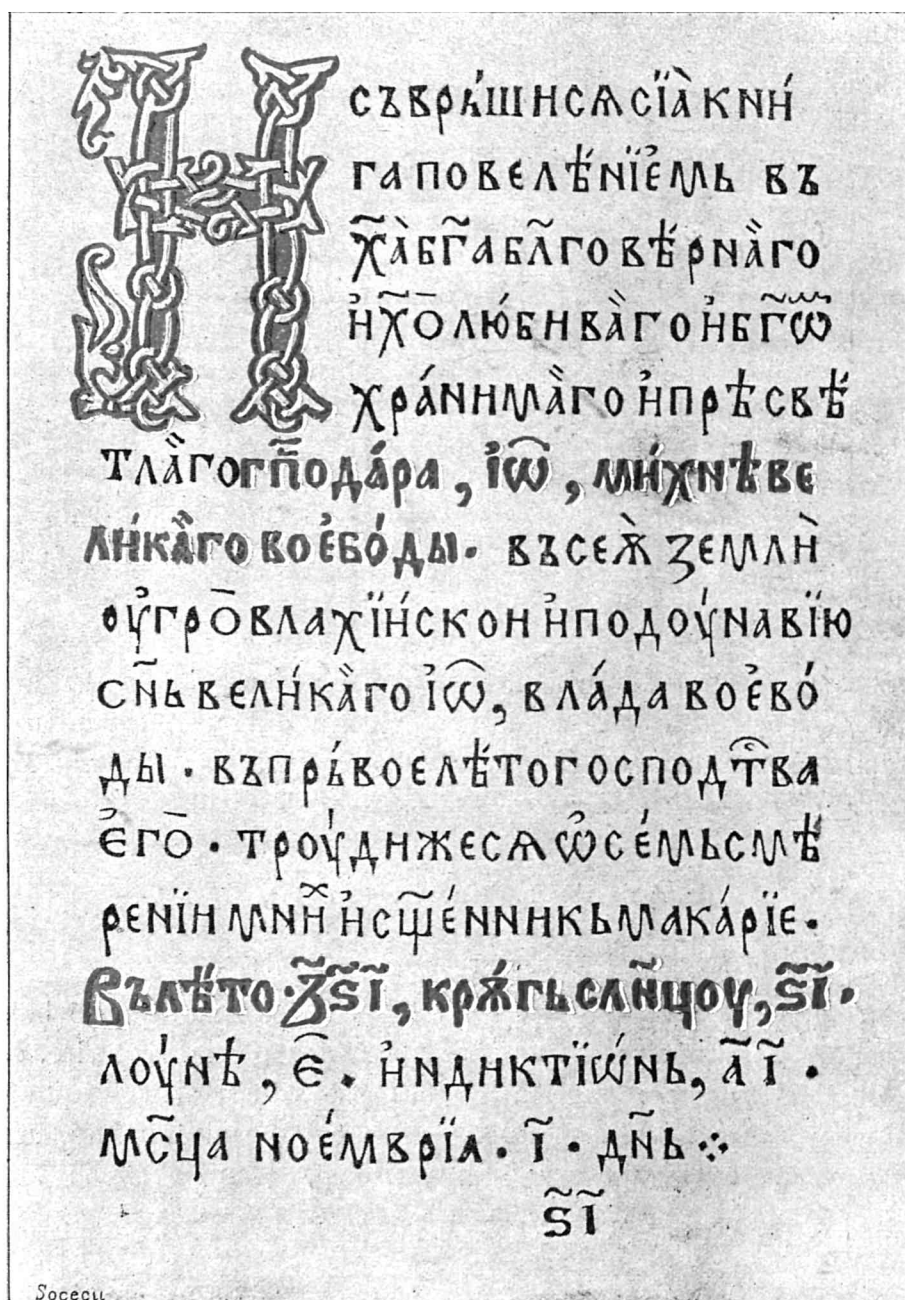 И съврꙿшисѧ сїа̀ кни́
га повелѣ́нїе҆мь въ
х҃а̀ б҃га бл҃говѣ́рна̀го
и҆х҃о̄лю́бива̀го и҆б҃гѡ
хра́нима̀го и҆прѣсвѣ́
тла̀гогп҃ода́ра, і҆ѡ̑, ми́хнѣве
ли́ка̀го вое҆во́ды. въсеѫ̀ землѝ
оу҆гро̄влахїи́скои и҆подоу́навїю
сн҃ь вели́ка̀го і҆ѡ̑, вла́да вое҆во́
ды · въпрь́вое лѣ́то господⷭ҇тва
е҆го̄ · троу́дижесѧ ѡ҆се́мь смѣ́
ренїи мни́ⷯ и҆сщ҃е́нникь мака́рїе ·
Въ лѣ́то · ҂з҃ѕ҃і҃, крѫ́гь слн҃цоу, ѕ҃і҃ ·
лоу́нѣ, е̑ · и҆ндиктїѡ́нь, а҃і҃ ·
мс҃ца ное́мврїа · і҃ · дн҃ь ⁘
ѕ҃і҃
Socecu